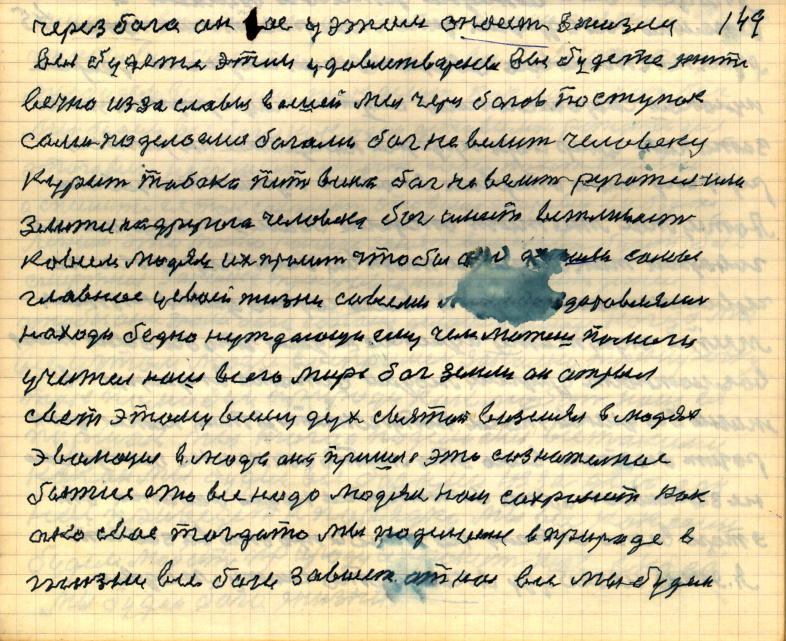 через бога он все у этого знает в жизни 149
вы будете этим удовлетворены вы будете жить
вечно из за славы вашей мы через богов поступок
сами поделаемся богами бог не велит человеку
курит табака пит вина бог не велит руготся или
злитс на другога человека бог имеет вежливост
ко всем людям их просит чтобы самое
главное у своей жизни со всеми здоровлялися
находи бедно нуждающи ему чем можеш помоги
учител наш всего мира бог земли он открыл
свет этому всему дух святой в людях
эволюция в люди она пришла это сознателное
бытие это все надо людям нам сохранит как
око свое тогдато мы в природе в
жизни все боги зависит от нас все мы будем